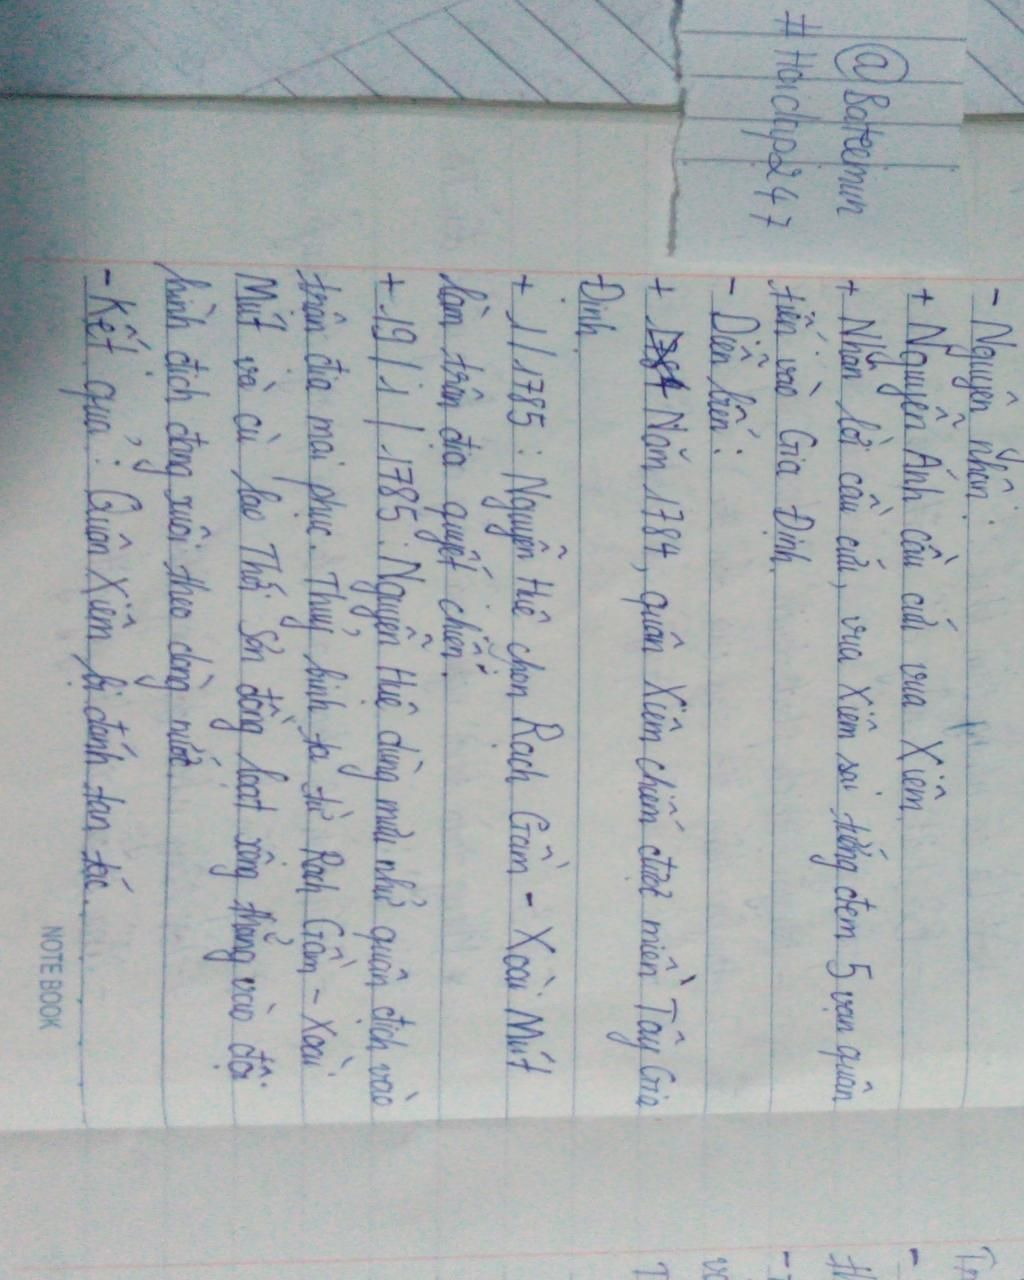 @Bateemun
#Hoidap247
- Nguyên nhân:
+ Nguyễn Ánh cầu cứu vua Xiêm
+ Nhân lời cầu cứu, vua Xiêm sai tướng đem 5 vạn quân
tiến vào Gia Định
- Diễn biến:
+ Năm 1784, quân Xiêm chiếm được miền Tây Gia
Định
+ 1/1785: Nguyễn Huệ chọn Rạch Gầm - Xoài Mút
làm trận địa quyết chiến.
+ 19/1/1785: Nguyễn Huệ dùng mưu nhử quân địch vào
trận địa mai phục. Thủy binh ta từ Rạch Gầm - Xoài
Mút và cù lao Thới Sơn đồng loạt xông thẳng vào đội
hình địch đang xuôi theo dòng nước.
- Kết quả: Quân Xiêm bị đánh tan tác.
NOTEBOOK